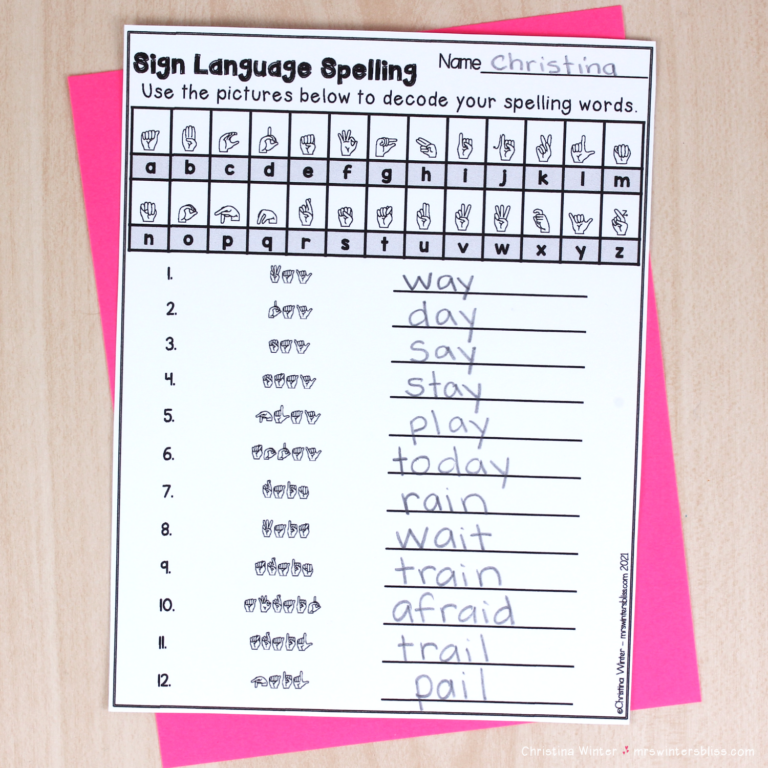 Sign Language Spelling Name Christina
Use the pictures below to decode your spelling words.
a b c d e f g h i j k l m
n o p q r s t u v w x y z
1. way
2. day
3. say
4. stay
5. play
6. today
7. rain
8. wait
9. train
10. afraid
11. trail
12. pail
©Christina Winter - mrswintersbliss.com 2021
Christina Winter mrswintersbliss.com